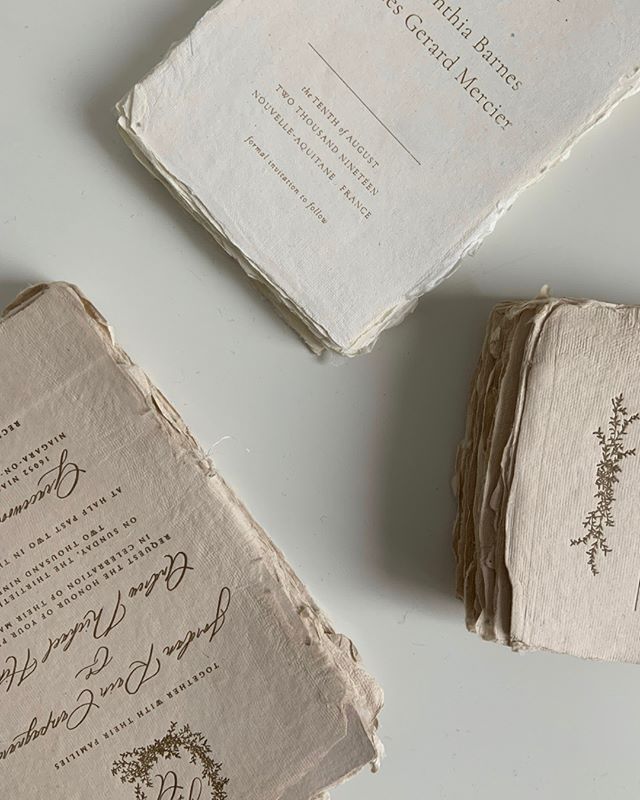 nthia Barnes
es Gerard Mercier
the TENTH of AUGUST
TWO THOUSAND NINETEEN
NOUVELLE-AQUITAINE . FRANCE
formal invitation to follow
TOGETHER WITH THEIR FAMILIES
&
REQUEST THE HONOUR OF YOUR P
IN CELEBRATION OF THEIR MA
ON SUNDAY, THE THIRTIET
TWO THOUSAND NINE
AT HALF PAST TWO IN T
16052 NIA
NIAGARA-ON-
REC